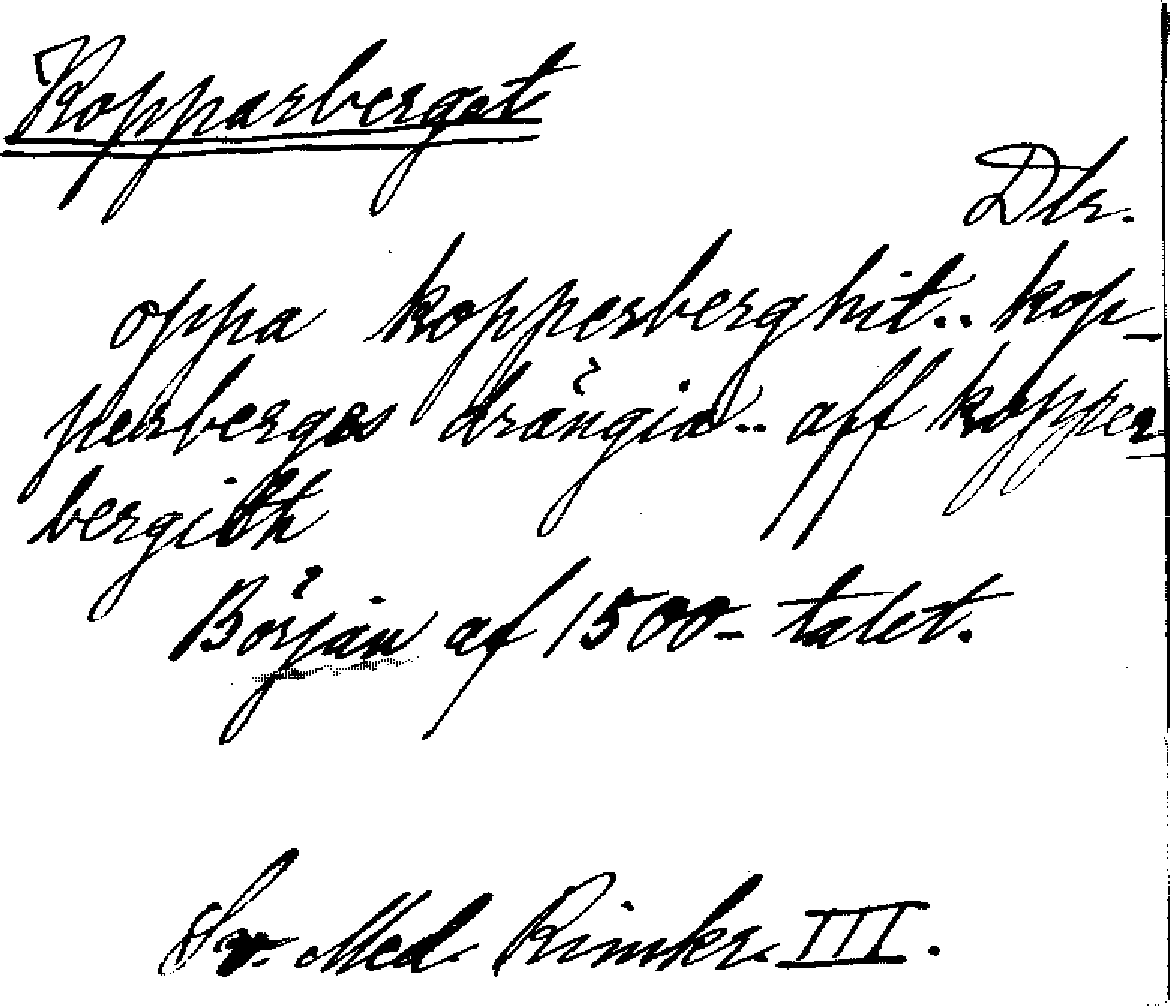 Kopparberget
Dlr.
oppa kopperberghit.. kop-
perbergos drängia.. aff kopper
bergith
Början af 1500-talet.
Sv. Med. Rimkr. III.